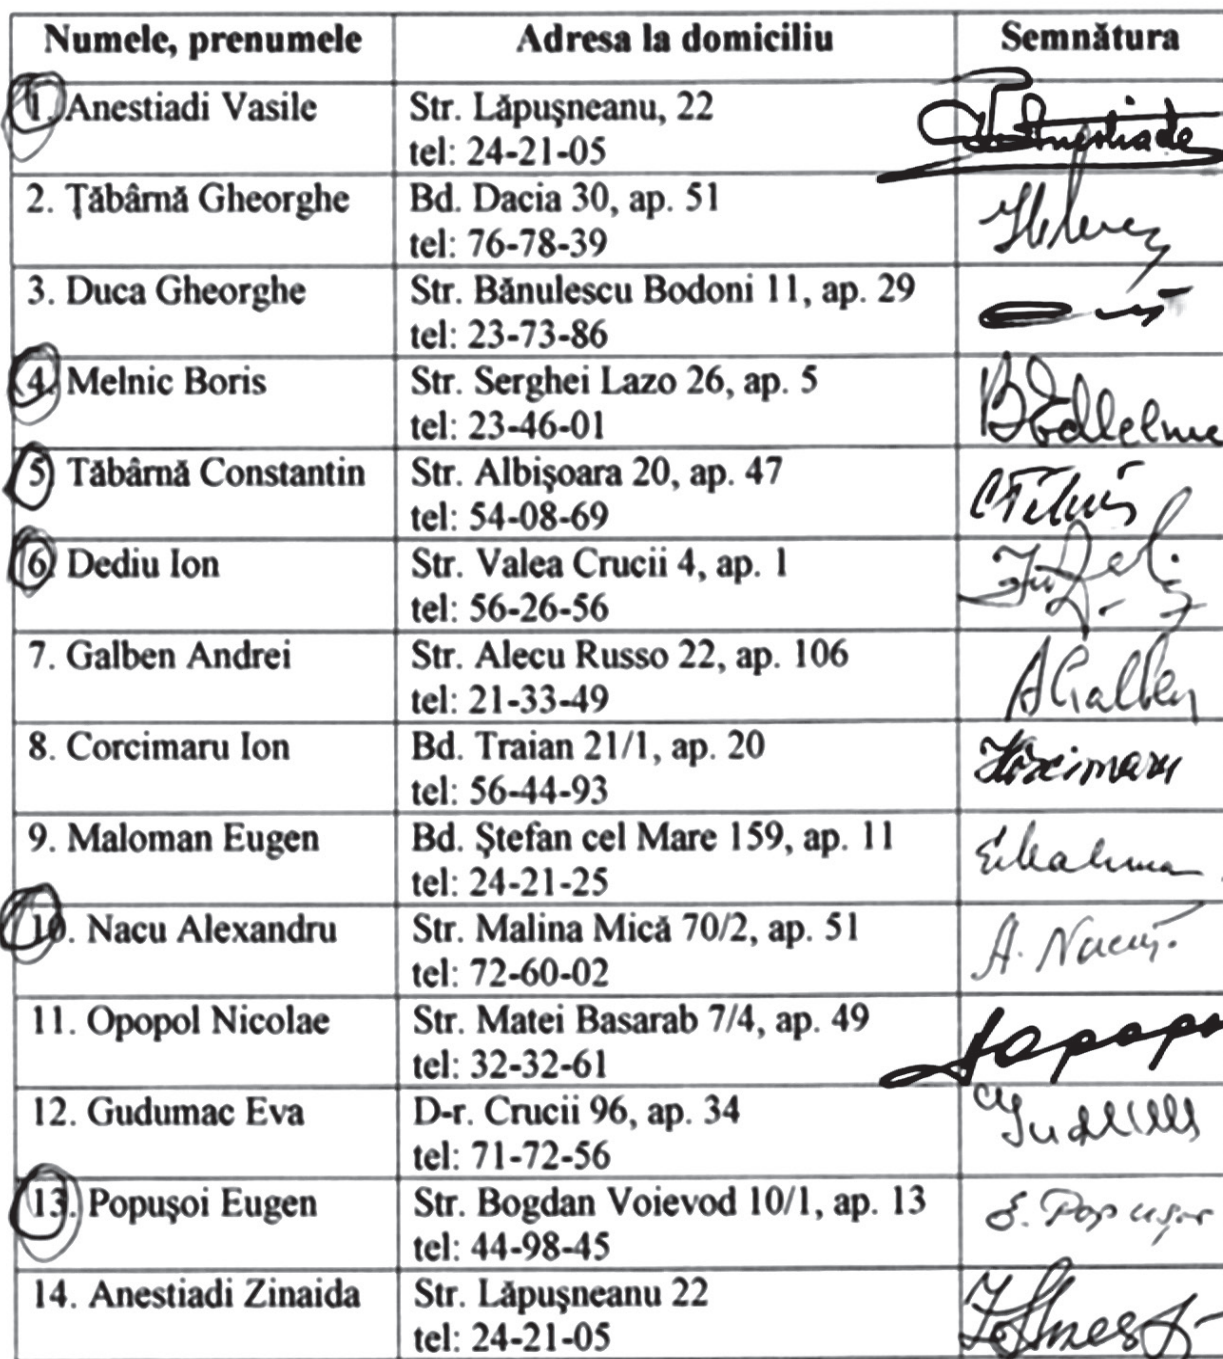 Numele, prenumele Adresa la domiciliu Semnătura
1. Anestiadi Vasile Str. Lăpușneanu, 22
tel: 24-21-05
2. Țăbârnă Gheorghe Bd. Dacia 30, ap. 51
tel: 76-78-39
3. Duca Gheorghe Str. Bănulescu Bodoni 11, ap. 29
tel: 23-73-86
4. Melnic Boris Str. Serghei Lazo 26, ap. 5
tel: 23-46-01
5 Tăbârnă Constantin Str. Albișoara 20, ap. 47
tel: 54-08-69
6. Dediu Ion Str. Valea Crucii 4, ap. 1
tel: 56-26-56
7. Galben Andrei Str. Alecu Russo 22, ap. 106
tel: 21-33-49
8. Corcimaru Ion Bd. Traian 21/1, ap. 20
tel: 56-44-93
9. Maloman Eugen Bd. Ștefan cel Mare 159, ap. 11
tel: 24-21-25
10. Nacu Alexandru Str. Malina Mică 70/2, ap. 51
tel: 72-60-02
11. Opopol Nicolae Str. Matei Basarab 7/4, ap. 49
tel: 32-32-61
12. Gudumac Eva D-r. Crucii 96, ap. 34
tel: 71-72-56
13. Popușoi Eugen Str. Bogdan Voievod 10/1, ap. 13
tel: 44-98-45
14. Anestiadi Zinaida Str. Lăpușneanu 22
tel: 24-21-05